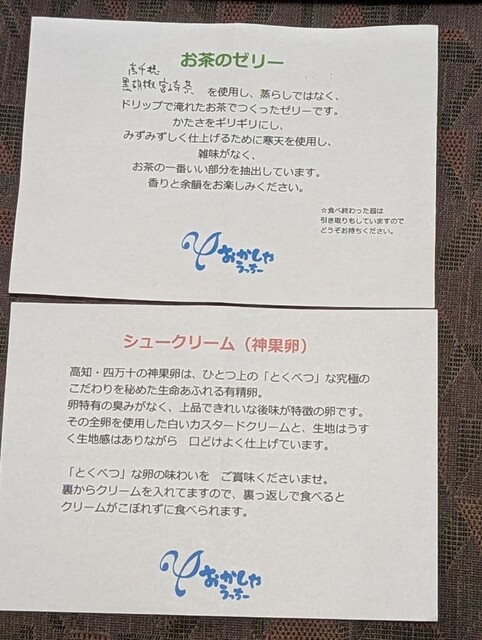 お茶のゼリー
高千穂
黒胡椒宮崎茶 を使用し、蒸らしではなく、
ドリップで淹れたお茶でつくったゼリーです。
かたさをギリギリにし、
みずみずしく仕上げるために寒天を使用し、
雑味がなく、
お茶の一番いい部分を抽出しています。
香りと余韻をお楽しみください。
☆食べ終わった器は
引き取りもしていますので
どうぞお持ちください。
おかしや
うっちー
シュークリーム（神果卵）
高知・四万十の神果卵は、ひとつ上の「とくべつ」な究極の
こだわりを秘めた生命あふれる有精卵。
卵特有の臭みがなく、上品できれいな後味が特徴の卵です。
その全卵を使用した白いカスタードクリームと、生地はうす
く生地感はありながら　口どけよく仕上げています。
「とくべつ」な卵の味わいを　ご賞味くださいませ。
裏からクリームを入れてますので、裏っ返しで食べると
クリームがこぼれずに食べられます。
おかしや
うっちー